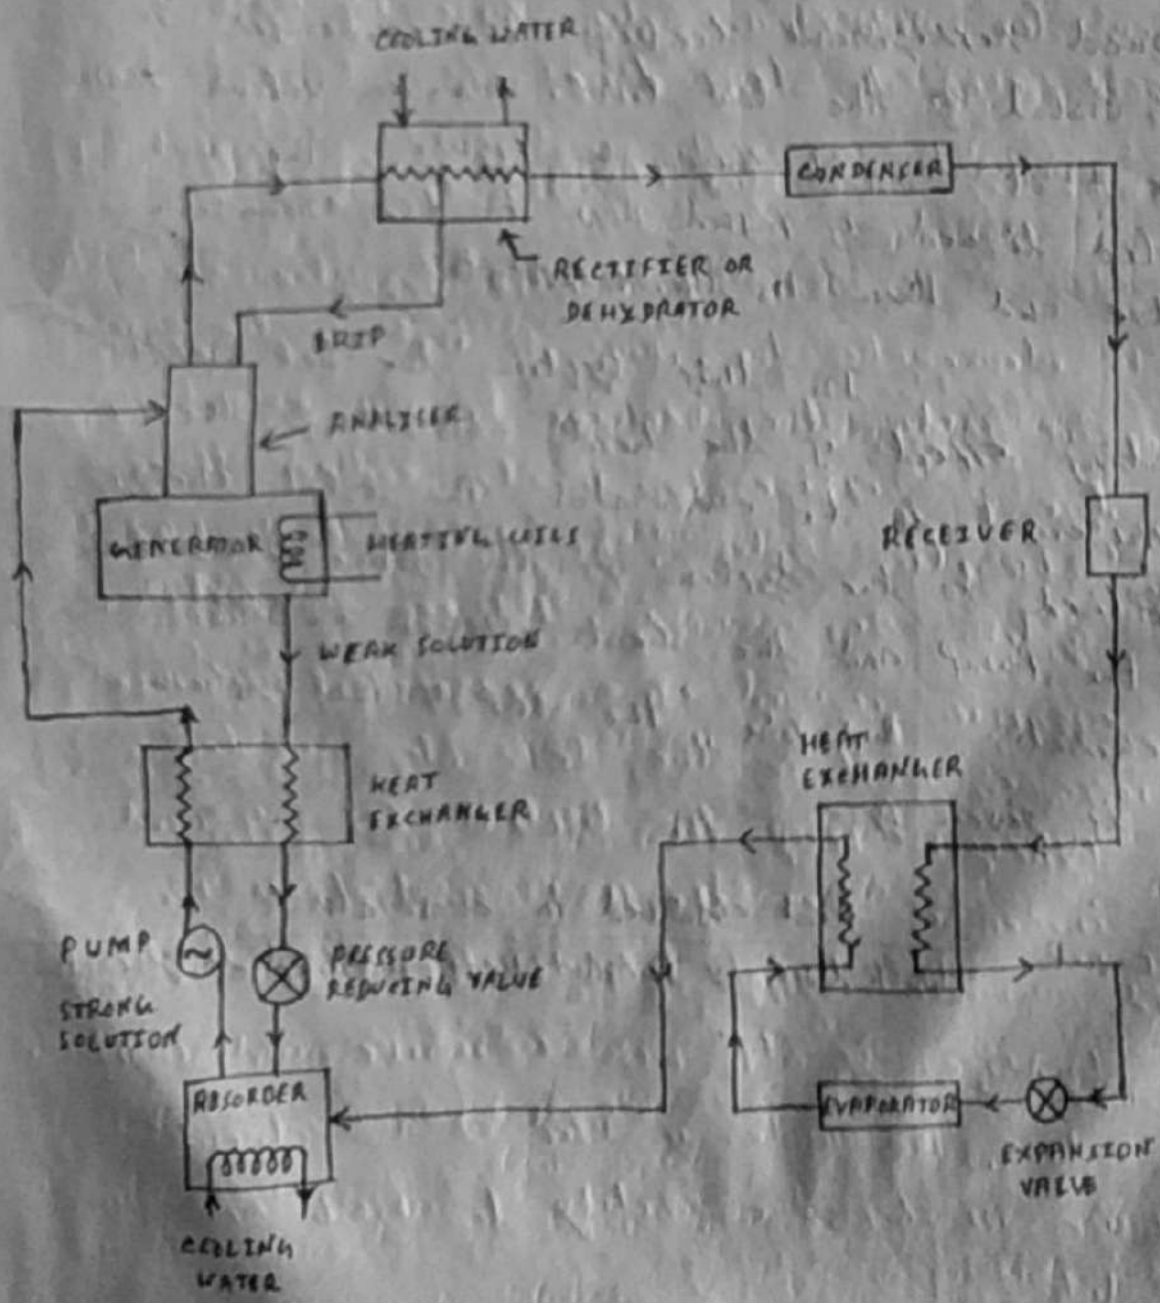 COOLING WATER
CONDENCER
RECTIFIER OR
DEHYDRATOR
DRIP
ANALICER
GENERATOR
HEATING COILS
RECEIVER
WEAK SOLUTION
HEAT
EXCHANGER
HEAT
EXCHANGER
PUMP
PRESSURE
REDUCING VALUE
STRONG
SOLUTION
ABSORDER
EVAPORATOR
EXPANSION
VALUE
COOLING
WATER